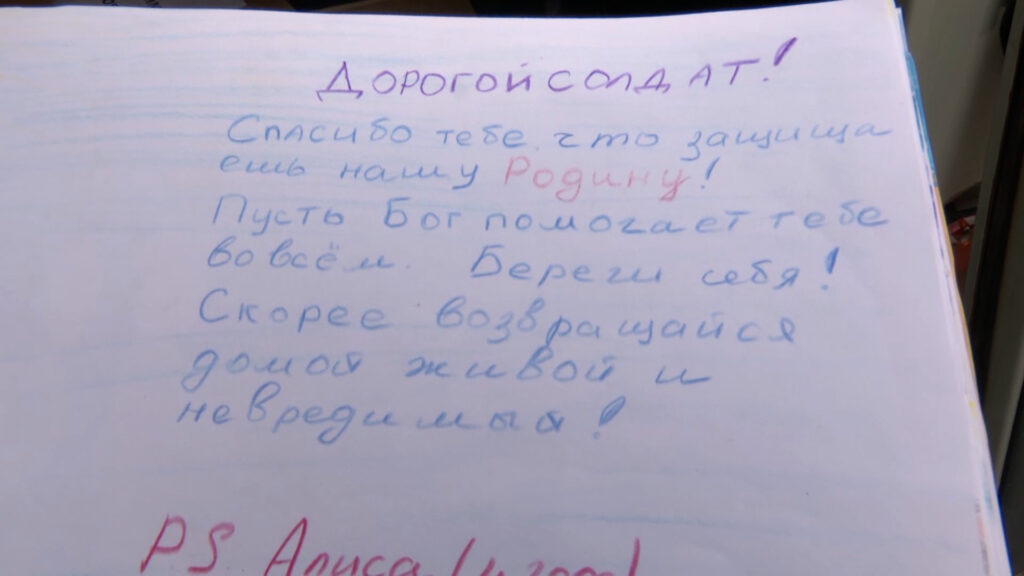 ДОРОГОЙ СОЛДАТ!
Спасибо тебе, что защища
ешь нашу Родину!
Пусть Бог помогает тебе
во всём. Береги себя!
Скорее возвращайся
домой живой и
невредимый!
P.S. Алиса (4 года)